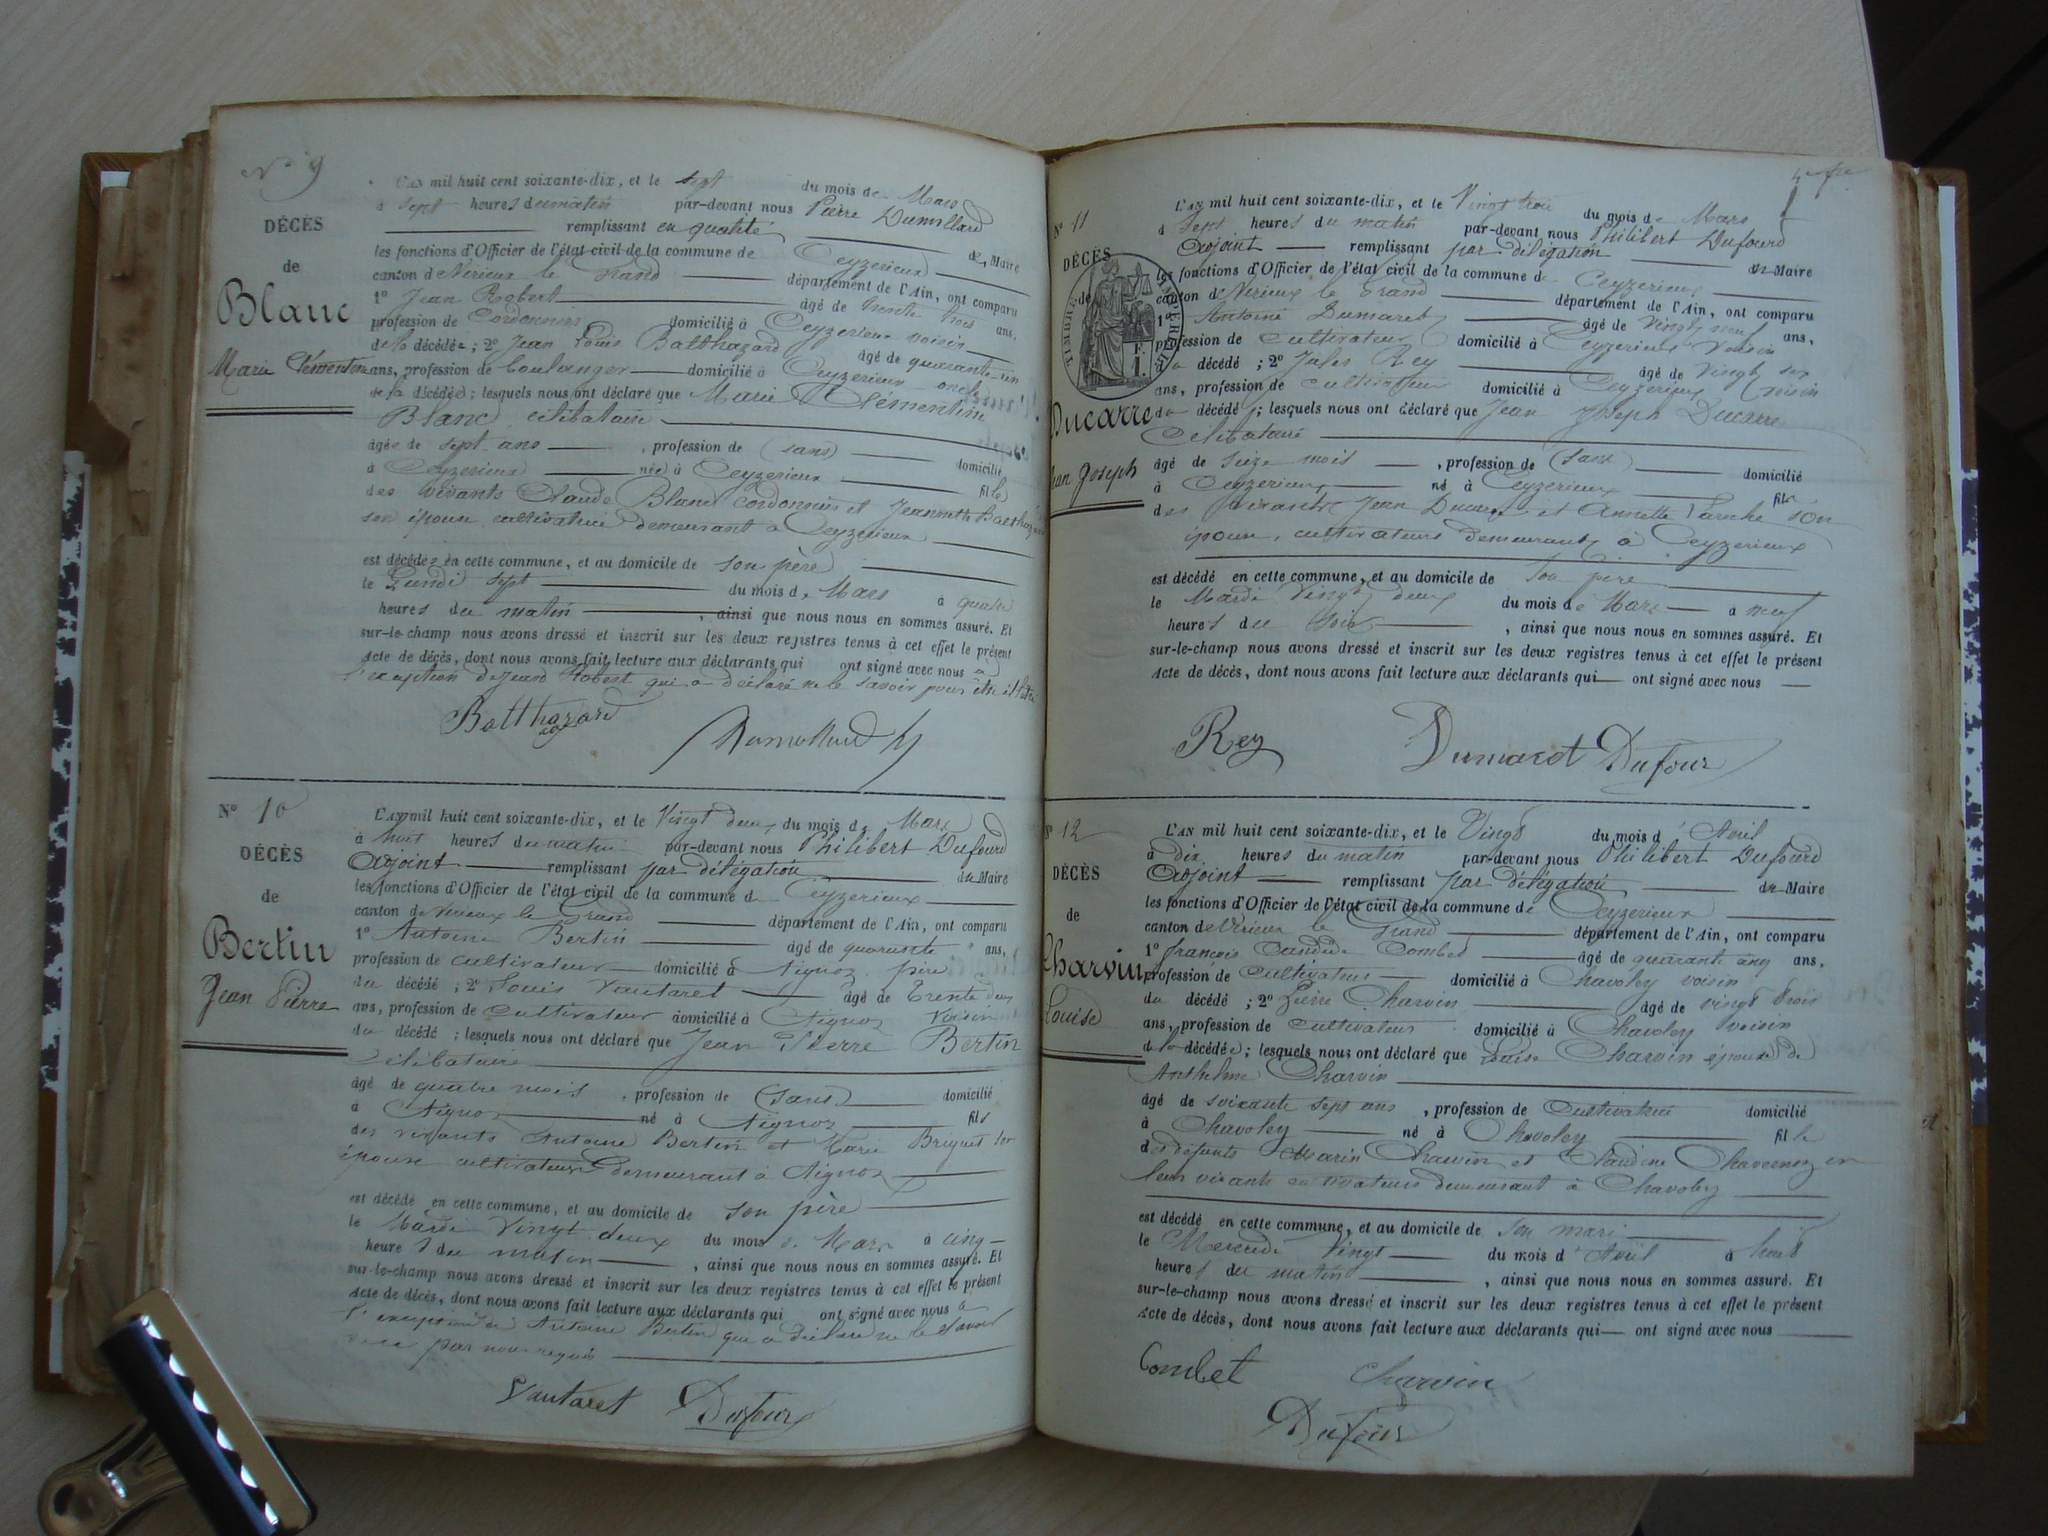 N° 9
DÉCÈS
de
Blanc
Marie Clémentine
L'AN mil huit cent soixante-dix, et le sept du mois de Mars
à sept heures du matin par-devant nous Pierre Dumollard
remplissant en qualité de Maire
les fonctions d'Officier de l'état civil de la commune de Ceyzerieux
canton de Virieux le Grand département de l'Ain, ont comparu
1° Jean Robert âgé de trente trois ans,
profession de Cordonnier domicilié à Ceyzerieux voisin
de la décédée ; 2° Jean Louis Balthazard âgé de quarante-un
ans, profession de boulanger domicilié à Ceyzerieux oncle
de la décédée ; lesquels nous ont déclaré que Marie Clémentine
Blanc célibataire
âgée de sept ans , profession de (sans) domicilié
à Ceyzerieux née à Ceyzerieux fille
des vivants Claude Blanc cordonnier et Jeannette Balthazard
son épouse cultivatrice demeurant à Ceyzerieux
est décédée en cette commune, et au domicile de son père
le Lundi sept du mois de Mars à quatre
heures du matin , ainsi que nous nous en sommes assuré. Et
sur-le-champ nous avons dressé et inscrit sur les deux registres tenus à cet effet le présent
acte de décès, dont nous avons fait lecture aux déclarants qui ont signé avec nous à
l'exception de Jean Robert qui a déclaré ne le savoir pour être illétré
Balthazard
Dumollard
N° 10
DÉCÈS
de
Bertin
Jean Pierre
L'AN mil huit cent soixante-dix, et le Vingt deux du mois de Mars
à huit heures du matin par-devant nous Philibert Dufourd
Adjoint remplissant par délégation du Maire
les fonctions d'Officier de l'état civil de la commune de Ceyzerieux
canton de Virieux le Grand département de l'Ain, ont comparu
1° Antoine Bertin âgé de quarante ans,
profession de cultivateur domicilié à Aignoz père
du décédé ; 2° Louis Vautaret âgé de trente deux
ans, profession de cultivateur domicilié à Aignoz Voisin
du décédé ; lesquels nous ont déclaré que Jean Pierre Bertin
célibataire
âgé de quatre mois , profession de (sans) domicilié
à Aignoz né à Aignoz fils
des vivants Antoine Bertin et Marie Briguet son
épouse cultivateurs demeurant à Aignoz
est décédé en cette commune, et au domicile de son père
le Mardi Vingt deux du mois de Mars à cinq
heures du matin , ainsi que nous nous en sommes assuré. Et
sur-le-champ nous avons dressé et inscrit sur les deux registres tenus à cet effet le présent
acte de décès, dont nous avons fait lecture aux déclarants qui ont signé avec nous à
l'exception de Antoine Bertin que a déclaré ne le savoir
par nous requis
Vautaret Dufour
N° 11
DÉCÈS
de
Ducarre
Jean Joseph
TIMBRE IMPÉRIAL
L'AN mil huit cent soixante-dix, et le Vingt trois du mois de Mars
à sept heures du matin par-devant nous Philibert Dufourd
Adjoint remplissant par délégation du Maire
les fonctions d'Officier de l'état civil de la commune de Ceyzerieux
canton de Virieux le Grand département de l'Ain, ont comparu
1° Antoine Dumaret âgé de vingt neuf ans,
profession de cultivateur domicilié à Ceyzerieux Voisin
du décédé ; 2° Jules Rey âgé de vingt six
ans, profession de cultivateur domicilié à Ceyzerieux voisin
du décédé ; lesquels nous ont déclaré que Jean Joseph Ducarre
Célibataire
âgé de seize mois , profession de (sans) domicilié
à Ceyzerieux né à Ceyzerieux fils
des vivants Jean Ducarre et Annette son
épouse, cultivateurs demeurants à Ceyzerieux
est décédé en cette commune, et au domicile de son père
le Mardi Vingt deux du mois de Mars à neuf
heures du soir , ainsi que nous nous en sommes assuré. Et
sur-le-champ nous avons dressé et inscrit sur les deux registres tenus à cet effet le présent
acte de décès, dont nous avons fait lecture aux déclarants qui ont signé avec nous
Rey Dumaret Dufour
N° 12
DÉCÈS
de
Charvin
Louise
L'AN mil huit cent soixante-dix, et le Vingt du mois d'Avril
à dix heures du matin par-devant nous Philibert Dufourd
Adjoint remplissant par délégation du Maire
les fonctions d'Officier de l'état civil de la commune de Ceyzerieux
canton de Virieux le Grand département de l'Ain, ont comparu
1° françois Combet âgé de quarante cinq ans,
profession de Cultivateur domicilié à Chavoley voisin
du décédé ; 2° Pierre Charvin âgé de vingt trois
ans, profession de cultivateur domicilié à Chavoley voisin
de la décédée ; lesquels nous ont déclaré que Louise Charvin épouse de
Anthelme Charvin
âgé de soixante sept ans , profession de Cultivatrice domicilié
à Chavoley né à Chavoley fille
des défunts Marin Charvin et Claudine Chavernoz en
leur vivants cultivateurs demeurant à Chavoley
est décédé en cette commune, et au domicile de son mari
le Mercredi Vingt du mois d'Avril à huit
heures du matin , ainsi que nous nous en sommes assuré. Et
sur-le-champ nous avons dressé et inscrit sur les deux registres tenus à cet effet le présent
acte de décès, dont nous avons fait lecture aux déclarants qui ont signé avec nous
Combet Charvin
Dufour